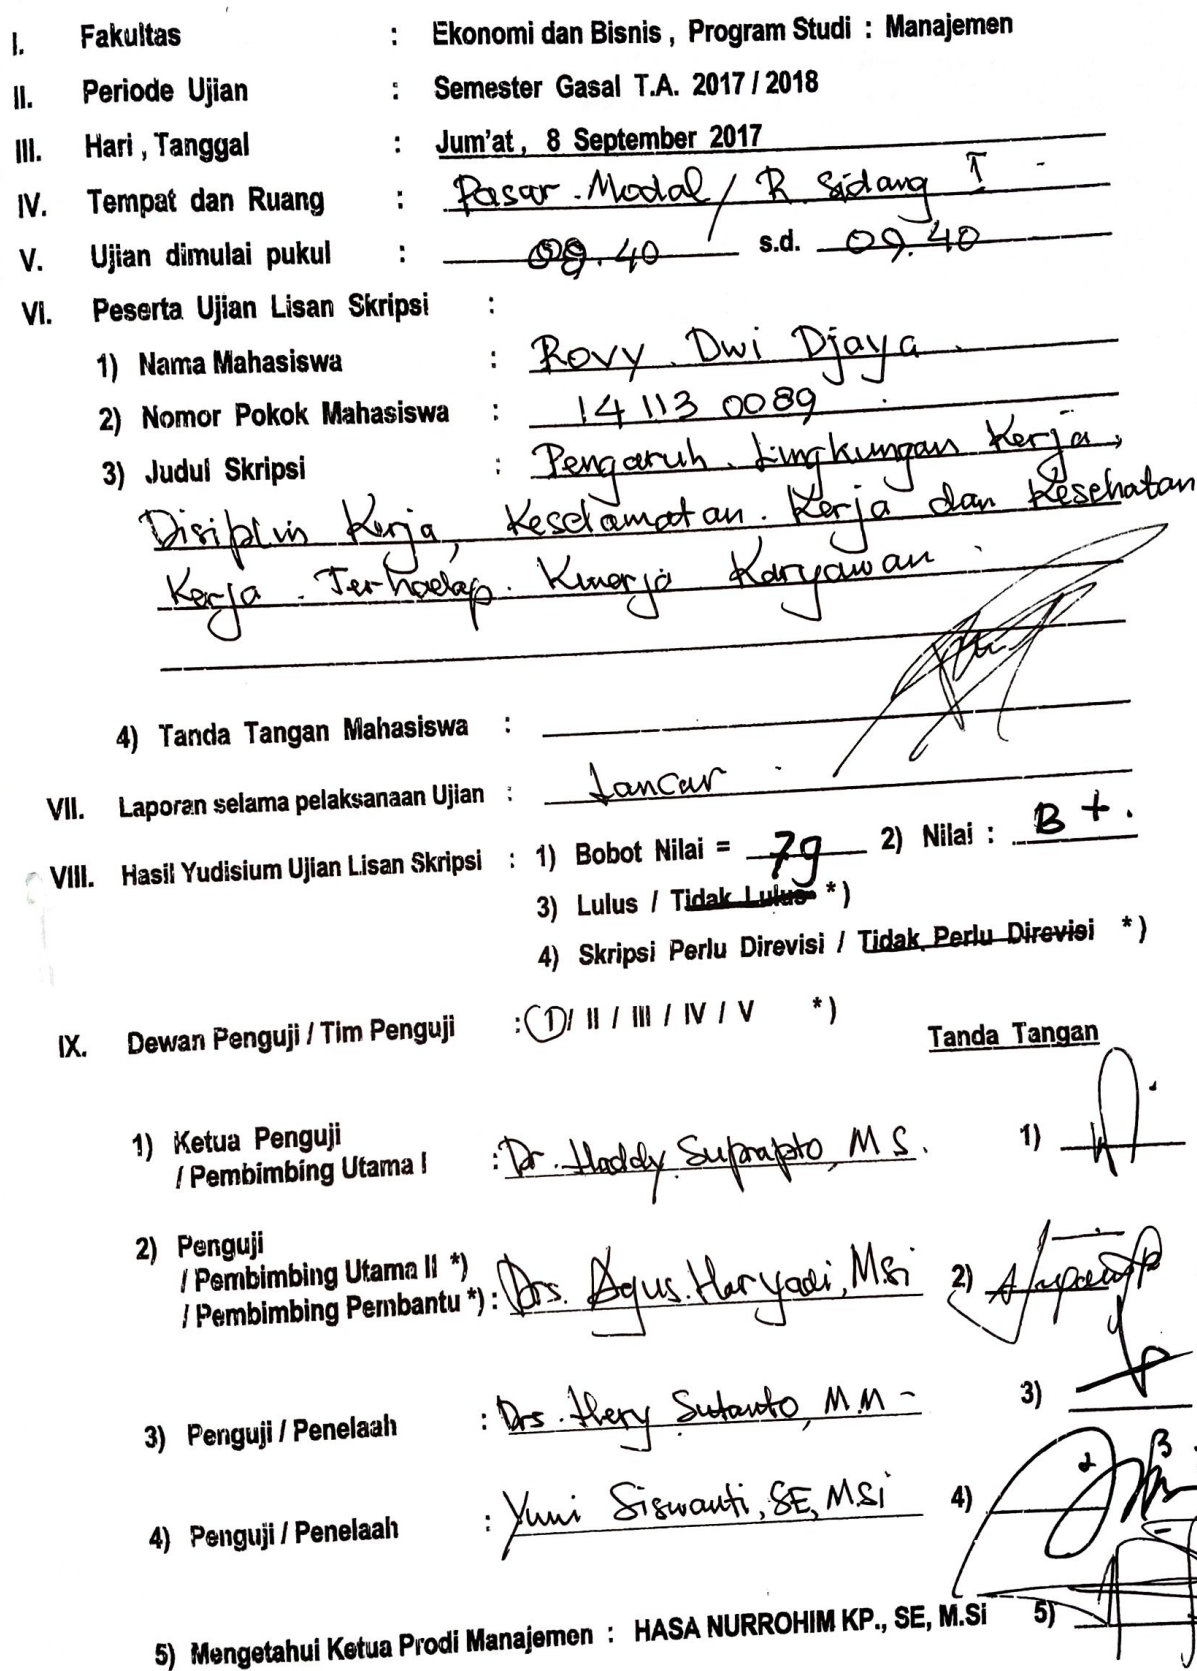 I. Fakultas : Ekonomi dan Bisnis , Program Studi : Manajemen
II. Periode Ujian : Semester Gasal T.A. 2017 / 2018
III. Hari , Tanggal : Jum'at , 8 September 2017
IV. Tempat dan Ruang : Pasar Modal / R Sidang I
V. Ujian dimulai pukul : 08.40 s.d. 09.40
VI. Peserta Ujian Lisan Skripsi :
1) Nama Mahasiswa : Rovy Dwi Djaya
2) Nomor Pokok Mahasiswa : 14 113 0089
3) Judul Skripsi : Pengaruh Lingkungan Kerja,
Disiplin Kerja, Keselamatan Kerja dan Kesehatan
Kerja Terhadap Kinerja Karyawan
4) Tanda Tangan Mahasiswa :
VII. Laporan selama pelaksanaan Ujian : Lancar
VIII. Hasil Yudisium Ujian Lisan Skripsi : 1) Bobot Nilai = 79 2) Nilai : B +.
3) Lulus / Tidak Lulus *)
4) Skripsi Perlu Direvisi / Tidak Perlu Direvisi *)
IX. Dewan Penguji / Tim Penguji : I / II / III / IV / V *)
Tanda Tangan
1) Ketua Penguji
/ Pembimbing Utama I : Dr. Haddy Suprapto, M S. 1)
2) Penguji
/ Pembimbing Utama II *)
/ Pembimbing Pembantu *) : Drs. Agus Haryadi, MSi 2)
3) Penguji / Penelaah : Drs. Hery Sutanto, M.M 3)
4) Penguji / Penelaah : Yuni Siswanti, SE, MSi 4)
5) Mengetahui Ketua Prodi Manajemen : HASA NURROHIM KP., SE, M.Si 5)